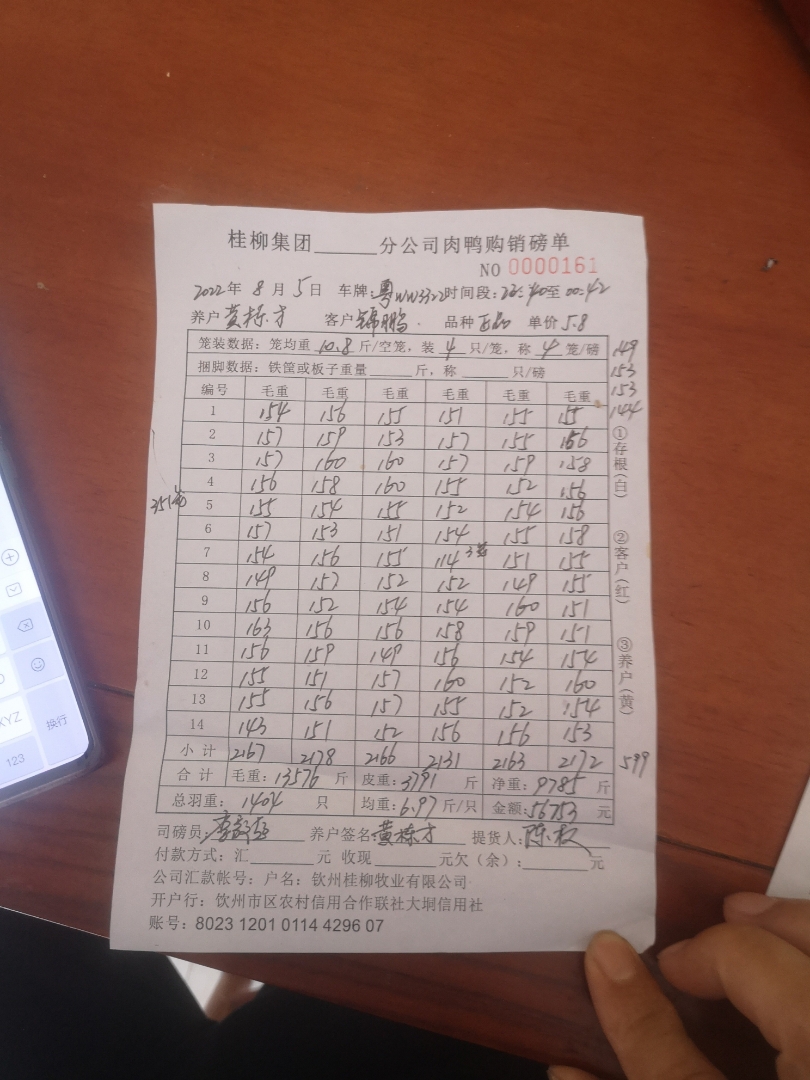 桂柳集团______分公司肉鸭购销磅单
NO 0000161
2022年 8 月 5 日 车牌:粤WW3322 时间段:23:40至00:42
养户 黄栋才 客户 锦鹏 品种 单价 5.8
笼装数据:笼均重 10.8 斤/空笼,装 4 只/笼,称 4 笼/磅
捆脚数据:铁筐或板子重量______斤,称______只/磅
149
153
153
144
编号 毛重 毛重 毛重 毛重 毛重 毛重
1 154 156 155 151 155 155
2 157 159 153 157 155 156
3 157 160 160 157 159 158
4 156 158 160 155 152 156
5 155 154 155 152 154 156
6 157 153 151 154 155 158
7 154 156 155 114 3笼 151 155
8 149 157 152 152 149 155
9 156 152 154 154 160 151
10 163 156 156 158 159 151
11 156 159 149 156 154 154
12 155 151 157 160 152 160
13 155 156 157 155 152 154
14 143 151 152 156 156 153
小计 2167 2178 2166 2131 2163 2172 599
351笼
①存根(白)
②客户(红)
③养户(黄)
合计 毛重:13576 斤 皮重:3791 斤 净重:9785 斤
总羽重: 1404 只 均重:6.97 斤/只 金额:56753 元
司磅员: 养户签名:黄栋才 提货人:陈权
付款方式:汇______元 收现______元欠(余):______元
公司汇款帐号:户名:钦州桂柳牧业有限公司
开户行:钦州市区农村信用合作联社大垌信用社
账号:8023 1201 0114 4296 07
换行
XYZ
123